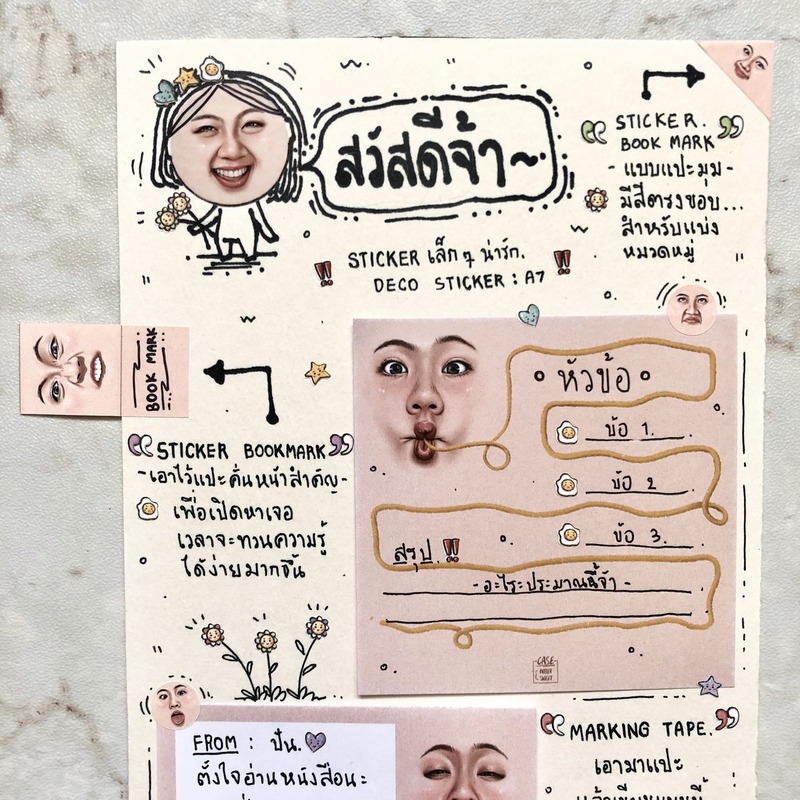 สวัสดีจ้า~
STICKER เล็ก ๆ น่ารัก.
DECO STICKER : A7
STICKER.
BOOK MARK
- แบบแปะมุม -
มีสีตรงขอบ...
สำหรับแบ่ง
หมวดหมู่
BOOK MARK
STICKER BOOKMARK
- เอาไว้แปะคั่นหน้าสำคัญ -
เพื่อเปิดหาเจอ
เวลาจะทวนความรู้
ได้ง่ายมากขึ้น
หัวข้อ
ข้อ 1.
ข้อ 2
ข้อ 3.
สรุป
- อะไระประมาณนี้จ้า -
CASE
FROM : ปัน.
ตั้งใจอ่านหนังสือนะ
MARKING TAPE.
เอามาแปะ